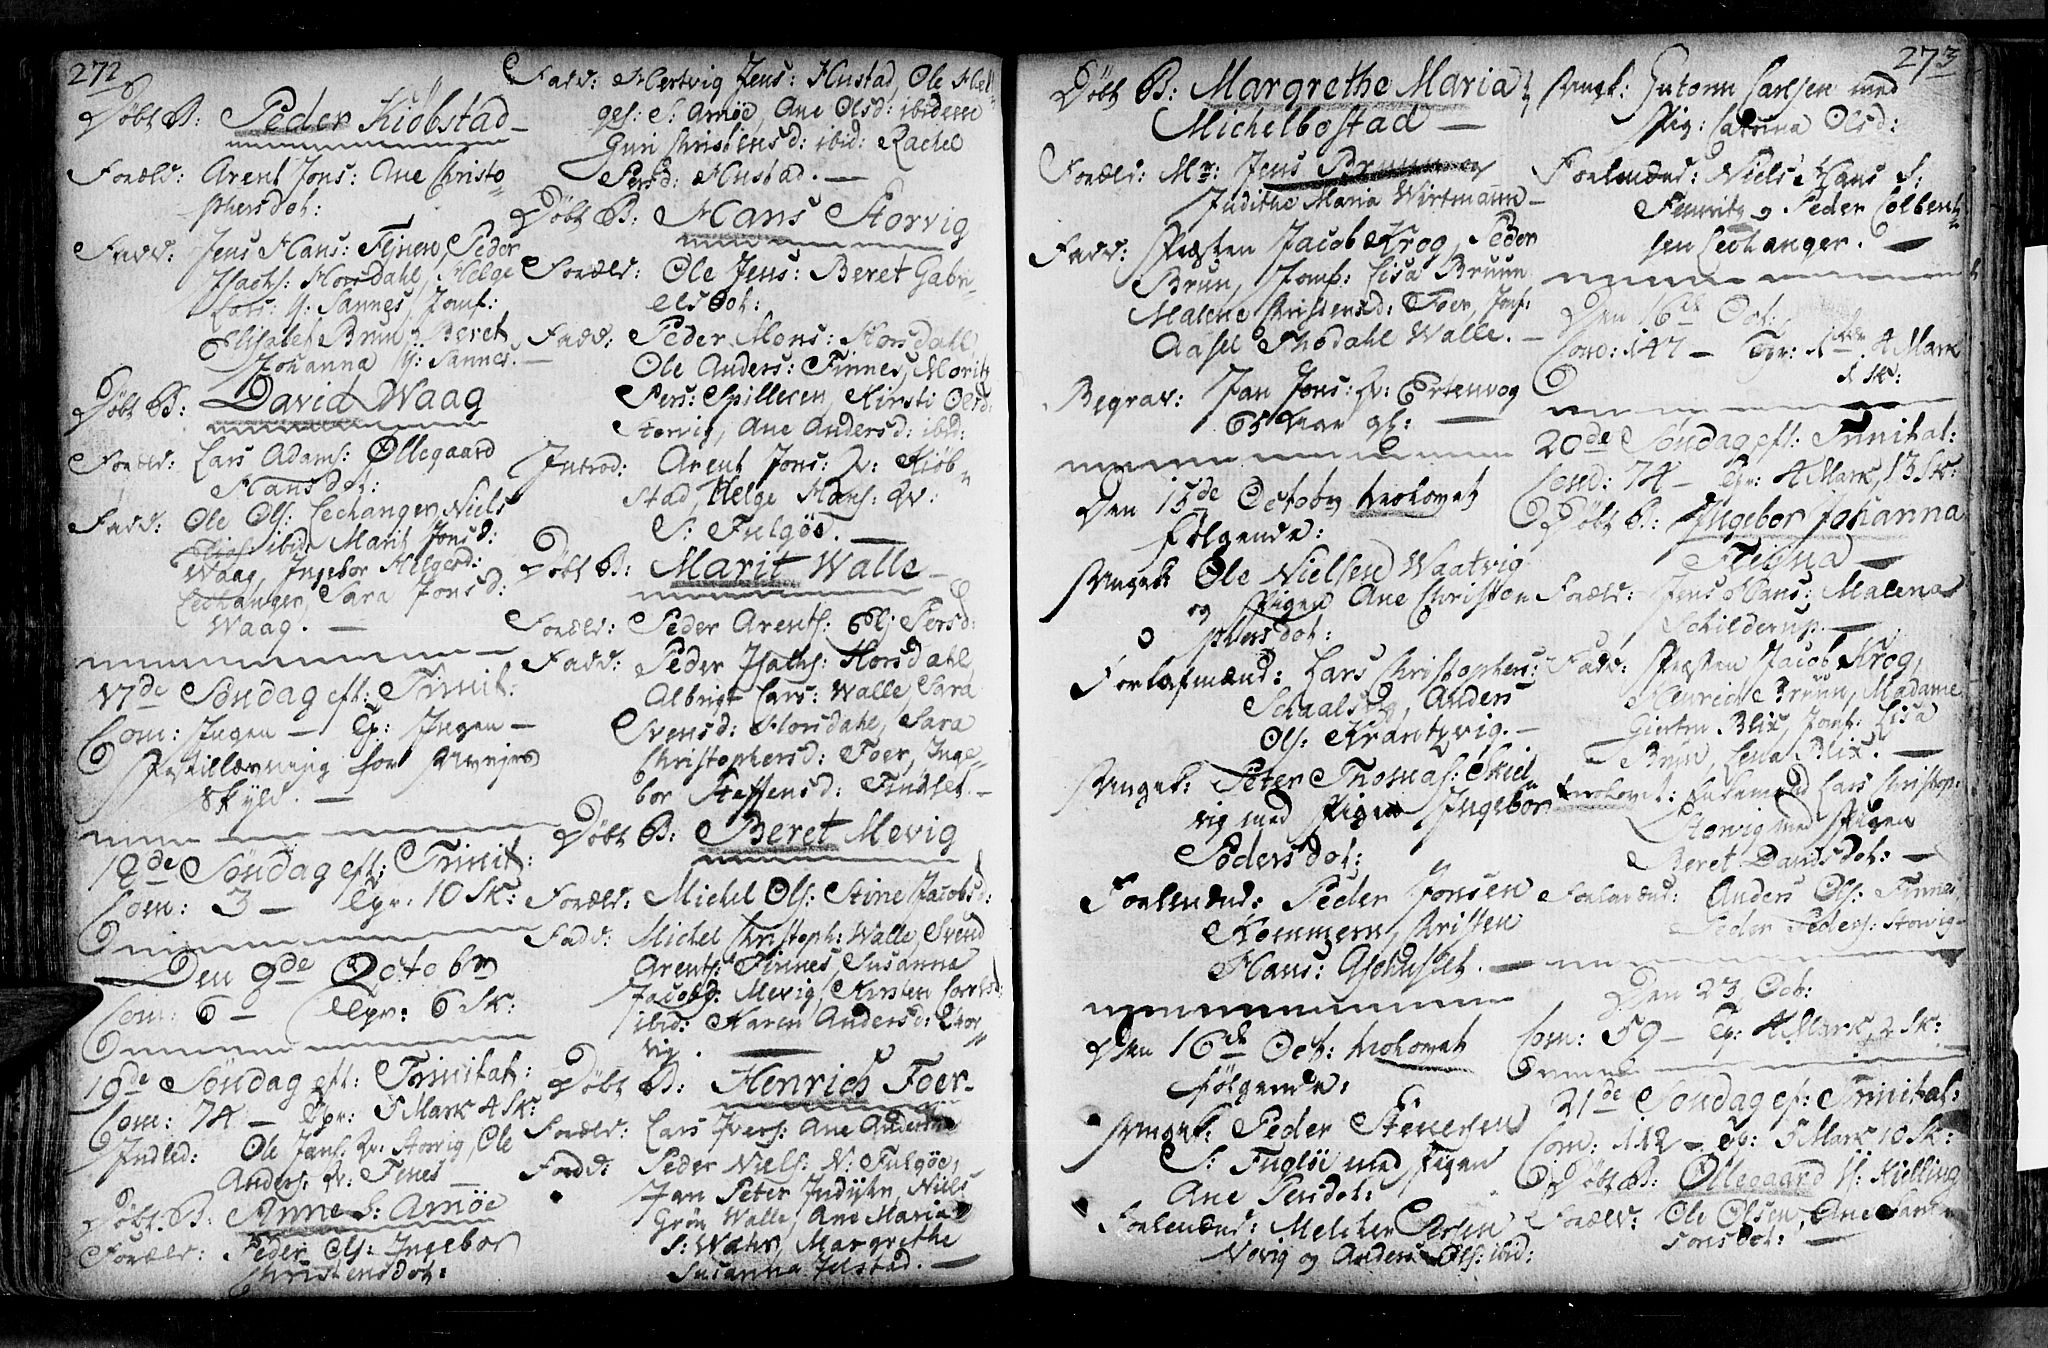 272
Døbt B: Peder Kiøbstad
Foræld: Arent Jons: Ane Christo-
phersdot:
Fadd: Jens Hans: Peder
Isachs: Horsdahl, Helge
Lars: Y: Sannes, Jomf:
Elisabet Brun, Beret
Johanna Y: Sannes.
Døbt B: David Waag
Foræld: Lars Adams: Øllegaard
Hansdot:
Fadd: Ole Ols: Lechanger, Niels
ibid: Marit Jonsd:
Waag, Ingebor Helgesd:
Lechanger, Sara Jonsd:
Waag.
17de Søndag eft: Trinit:
Com: Ingen — Tp: Ingen —
for
Skyld.
18de Søndag eft: Trinit:
Com: 3 — Tpr. 10 Sk:
Den 9de Octobr
Com: 6 — Tpr: 6 Sk:
19de Søndag eft: Trinitat:
Com: 74 — Tpr: 5 Mark 4 Sk:
Indled: Ole Jens: Qv: Storvig, Ole
Anders: Qv: Fenes —
Døbt B: Anne S: Arnøe
Foræld: Peder Ols: Ingebor
Christensdot:
Fadd: Hertvig Jens: Hustad, Ole Hel-
ges: S: Arnøe, Ane Olsd: ibidem
Guri Christensd: ibid: Rachel
Persd: Hustad.
Døbt B: Hans Storvig
Foræld: Ole Jens: Beret Gabri-
elsdot:
Fadd: Peder Mons: Horsdahl
Ole Anders: Finnes, Morits
Pers: Spilderen, Kirsti Olsd:
Storvig, Ane Andersd: ibid:
Introd: Arent Jons: Qv: Kiøb-
stad, Helge Hans: Qv:
S: Fulgøe.
Døbt B: Marit Walle
Foræld: Peder Arents: Elj: Persd:
Fadd: Peder Isachs: Horsdahl,
Albrigt Lars: Walle, Sara
Svensd: Horsdahl, Sara
Christophersd: Foer, Inge-
bor Steffensd: Findset.
Døbt B: Beret Mevig
Foræld: Michel Ols: Stine Jacobsd:
Fadd: Michel Christoph: Walle, Svend
Arents: Finnes, Susanna
Jacobsd: Mevig, Kirsten
ibid: Karen Andersd: Stor-
vig.
Døbt B: Henrich Foer
Foræld: Lars Ivers: Ane Andersd:
Fadd: Peder Niels: N: Fulgøe,
Jan Peter Indijhr, Niels
Grøn Walle, Ane Maria
S: Wæhr, Margrethe
Susanna Jelstad.
273
Døbt B: Margrethe Maria
Michelbostad
Foræld: Mr: Jens Bruun og
Judithe Maria Wirtmann
Fadd: Præsten Jacob Krog, Peder
Brun, Jomf: Lisa Bruun
Malene Christensd: Foer, Jonf:
Aasel Thodahl Walle.
Begrav: Jan Jons: Qv: Ertenvog
65 Aar gl:
Den 15de Octobr trolovet
følgende:
Ungek: Ole Nielsen Waatvig
og Pigen Ane Christo
phersdot:
Forlofmænd: Lars Christophers:
Schaalsv, Anders
Ols: Krantzvig.
Ungek: Peter Thomas: Skiel-
vig med Pigen Ingebor
Pedersdot:
Forlmænd: Peder Jonsen
Kommern, Kristen
Hans:
Den 16de Oct: trolovet
følgende:
Ungek: Peder Stenersen
S: Fugløe med Pigen
Ane Persdot:
Forlmænd: Melcher Ersen
Novig og Anders Ols: ibid:
Ungk: Antonn Carlsen med
Pig: Catrina Olsd:
Forlmænd: Niels Hans S:
og Peder Colbent-
sen Lechanger.
Den 16de Oct:
Com: 147 — Tpr: 1 4 Mark
1 Sk:
20de Søndag eft: Trinitat:
Com: 74 — Tpr: 4 Mark, 13 Sk:
Døbt B: Ingebor Johanna
Foræld: Jens Hans: Malena
Schilderup.
Fadd: Præsten Jacob Krog,
Henrich Bruun, Madame
Giertru Blix, Jomf: Lisa
Brun, Lena Blix.
Trolovet: Enkemand Lars Christop:
Storvig med Pigen
Beret Davidsdot:
Forlmænd: Anders Ols: Finnes
Peder Peders: Storvig
Den 23 Oct:
Com: 59 — Tp: 4 Mark, 2 Sk:
21de Søndag ef: Trinitat:
Com: 112 — Tp: 5 Mark 10 Sk:
Døbt B: Øllegaard Y: Kielling
Foræld: Ole Olsen, Ane Lar-
sonsdot: